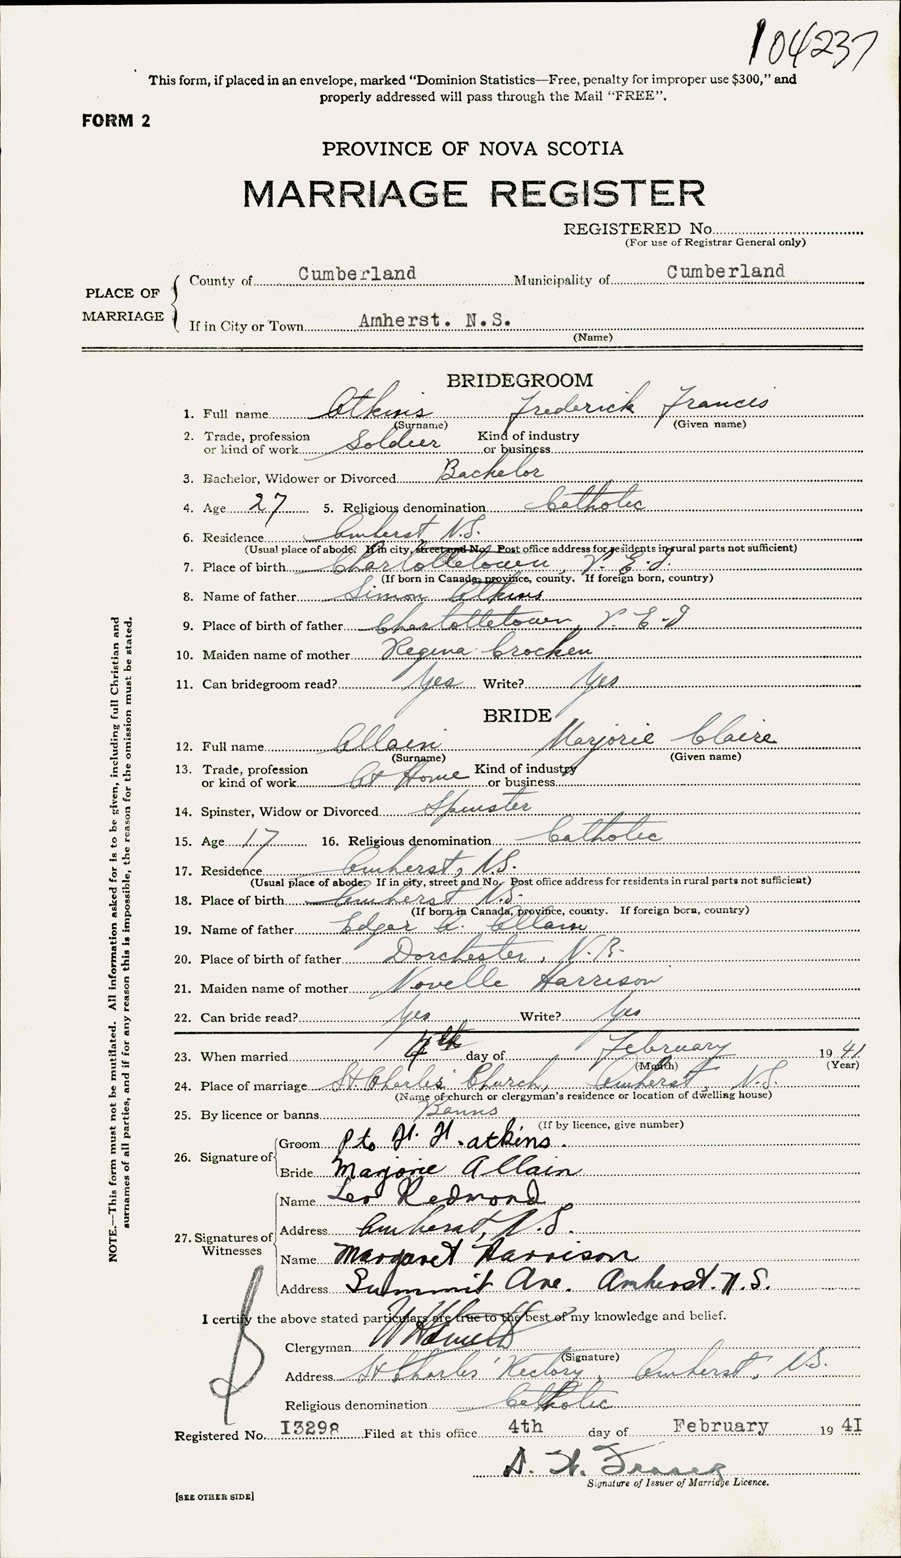 104237
This form, if placed in an envelope, marked “Dominion Statistics—Free, penalty for improper use $300,” and
properly addressed will pass through the Mail “FREE”.
FORM 2
PROVINCE OF NOVA SCOTIA
MARRIAGE REGISTER
REGISTERED No.
(For use of Registrar General only)
PLACE OF MARRIAGE
County of Cumberland Municipality of Cumberland
If in City or Town Amherst. N.S.
(Name)
BRIDEGROOM
1. Full name Atkins Frederick Francis
(Surname) (Given name)
2. Trade, profession or kind of work Soldier Kind of industry or business
3. Bachelor, Widower or Divorced Bachelor
4. Age 27 5. Religious denomination Catholic
6. Residence Amherst N.S.
(Usual place of abode. If in city, street and No. Post office address for residents in rural parts not sufficient)
7. Place of birth Charlottetown, P.E.I.
(If born in Canada, province, county. If foreign born, country)
8. Name of father Simon Atkins
9. Place of birth of father Charlottetown, P.E.I
10. Maiden name of mother Regina Crocken
11. Can bridegroom read? Yes Write? Yes
BRIDE
12. Full name Allain Marjorie Claire
(Surname) (Given name)
13. Trade, profession or kind of work At Home Kind of industry or business
14. Spinster, Widow or Divorced Spinster
15. Age 17 16. Religious denomination Catholic
17. Residence Amherst, N.S.
(Usual place of abode. If in city, street and No. Post office address for residents in rural parts not sufficient)
18. Place of birth Amherst N.S.
(If born in Canada, province, county. If foreign born, country)
19. Name of father Edgar A. Allain
20. Place of birth of father Dorchester, N.B.
21. Maiden name of mother Novelle Harrison
22. Can bride read? Yes Write? Yes
23. When married 4th day of February 1941
(Month) (Year)
24. Place of marriage St Charles' Church, Amherst, N.S.
(Name of church or clergyman's residence or location of dwelling house)
25. By licence or banns Banns
(If by licence, give number)
26. Signature of
Groom Pte F. F. Atkins.
Bride Marjorie Allain
27. Signatures of Witnesses
Name Leo Redmond
Address Amherst, N.S.
Name Margaret Harrison
Address Summit Ave. Amherst. N.S.
I certify the above stated particulars are true to the best of my knowledge and belief.
Clergyman
(Signature)
Address St Charles' Rectory, Amherst, N.S.
Religious denomination Catholic
Registered No. I3298 Filed at this office 4th day of February 1941
D. W. Fraser
Signature of Issuer of Marriage Licence.
[SEE OTHER SIDE]
NOTE.—This form must not be mutilated. All information asked for is to be given, including full Christian and
surnames of all parties, and if for any reason this is impossible, the reason for the omission must be stated.